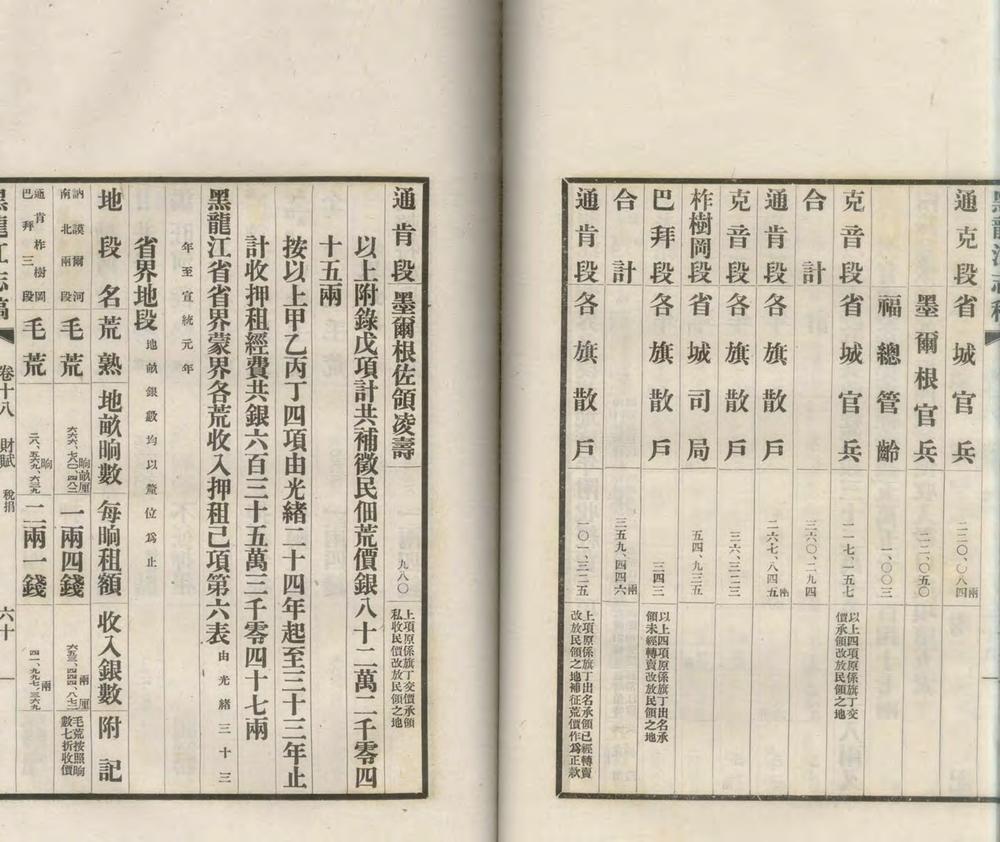 通克段省城官兵 二二〇、〇八四兩
墨爾根官兵 二二、〇五〇
福總管齡 一、〇〇三
克音段省城官兵 一一七、一五七 以上四項原係旗丁交價承領改放民領之地
合計 三六〇、二九四
通肯段各旗散戶 二六七、八四五兩
克音段各旗散戶 三六、三二三
柞樹岡段省城司局 五四、九三五
巴拜段各旗散戶 三四三 以上四項原係旗丁出名承領未經轉賣改放民領之地
合計 三五九、四四六兩
通肯段各旗散戶 一〇一、三二五 上項原係旗丁出名承領已經轉賣改放民領之地補征荒價作爲正款
通肯段墨爾根佐領凌壽 九八〇 上項原係旗丁交價承領私收民價改放民領之地
以上附錄戊項計共補徵民佃荒價銀八十二萬二千零四
十五兩
按以上甲乙丙丁四項由光緒二十四年起至三十三年止
計收押租經費共銀六百三十五萬三千零四十七兩
黑龍江省省界蒙界各荒收入押租己項第六表 由光緒三十三
年至宣統元年
省界地段 地畝銀數均以釐位爲止
地段名 荒熟 地畝晌數 每晌租額 收入銀數 附記
訥謨爾河南北兩段 毛荒 六六六、七八〇、四八二晌畝厘 一兩四錢 六五三、四四四、八七二兩厘 毛荒按照晌數七折收價
通肯柞樹岡巴拜三段 毛荒 二八、五六九、六三九晌 二兩一錢 四一、九九七、三六九兩
卷十八 財賦 稅捐 六十一